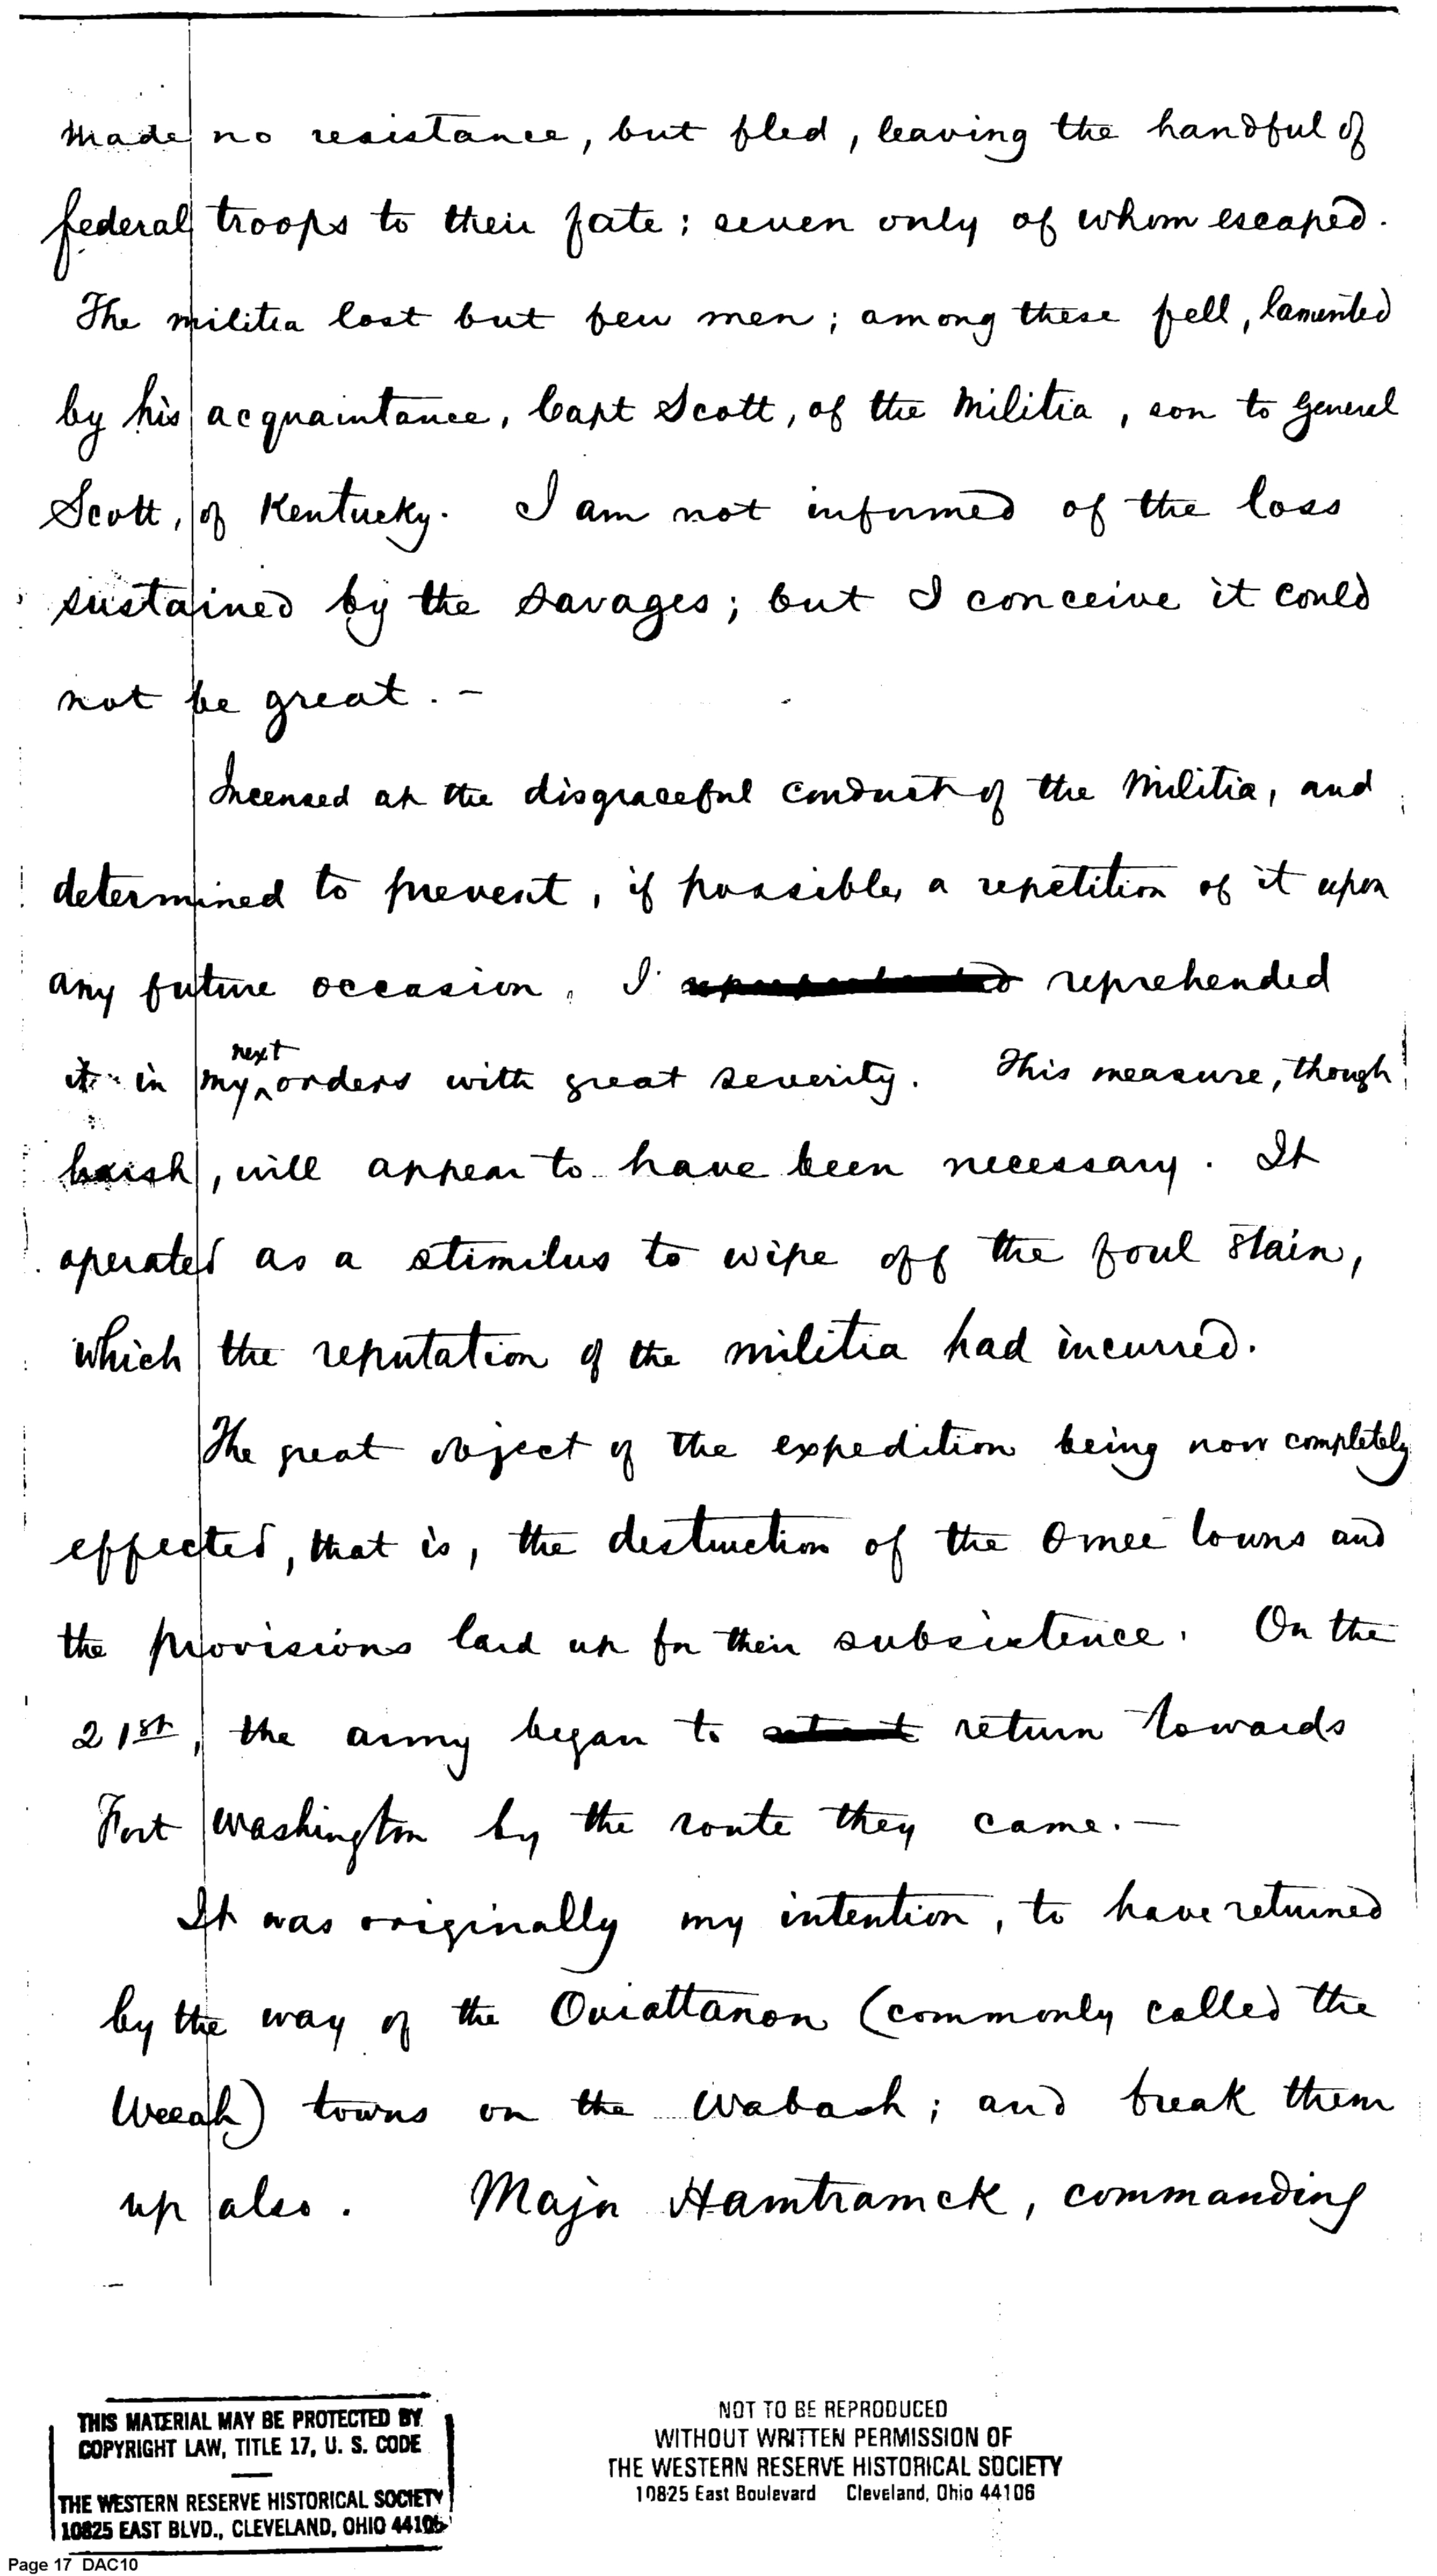 made no resistance, but fled, leaving the handful of
federal troops to their fate; seven only of whom escaped.
The militia lost but few men; among these fell, lamented
by his acquaintance, Capt Scott, of the Militia, son to General
Scott, of Kentucky. I am not informed of the loss
sustained by the savages; but I conceive it could
not be great. -
Incensed at the disgraceful conduct of the Militia, and
determined to prevent, if possible, a repetition of it upon
any future occasion, I reprehended
it in my next orders with great severity. This measure, though
harsh, will appear to have been necessary. It
operated as a stimulus to wipe off the foul stain,
which the reputation of the militia had incurred.
The great object of the expedition being now completely
effected, that is, the destruction of the Omee towns and
the provisions laid up for their subsistence. On the
21st, the army began to return towards
Fort Washington by the route they came. -
It was originally my intention, to have returned
by the way of the Ouiattanon (commonly called the
Weeah) towns on the Wabash; and break them
up also. Major Hamtramck, commanding
THIS MATERIAL MAY BE PROTECTED BY
COPYRIGHT LAW, TITLE 17, U. S. CODE
THE WESTERN RESERVE HISTORICAL SOCIETY
10825 EAST BLVD., CLEVELAND, OHIO 44106
NOT TO BE REPRODUCED
WITHOUT WRITTEN PERMISSION OF
THE WESTERN RESERVE HISTORICAL SOCIETY
10825 East Boulevard Cleveland, Ohio 44106
Page 17 DAC10